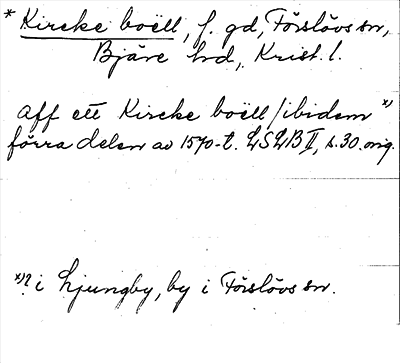 * Kircke boëll, f. gd, Förslövs sn,
Bjäre hd, Krist. l.
aff ett Kircke boëll /ibidem x)
förra delen av 1570-t. LSLB II, s. 30. orig.
x)? i Ljungby, by i Förslövs sn.